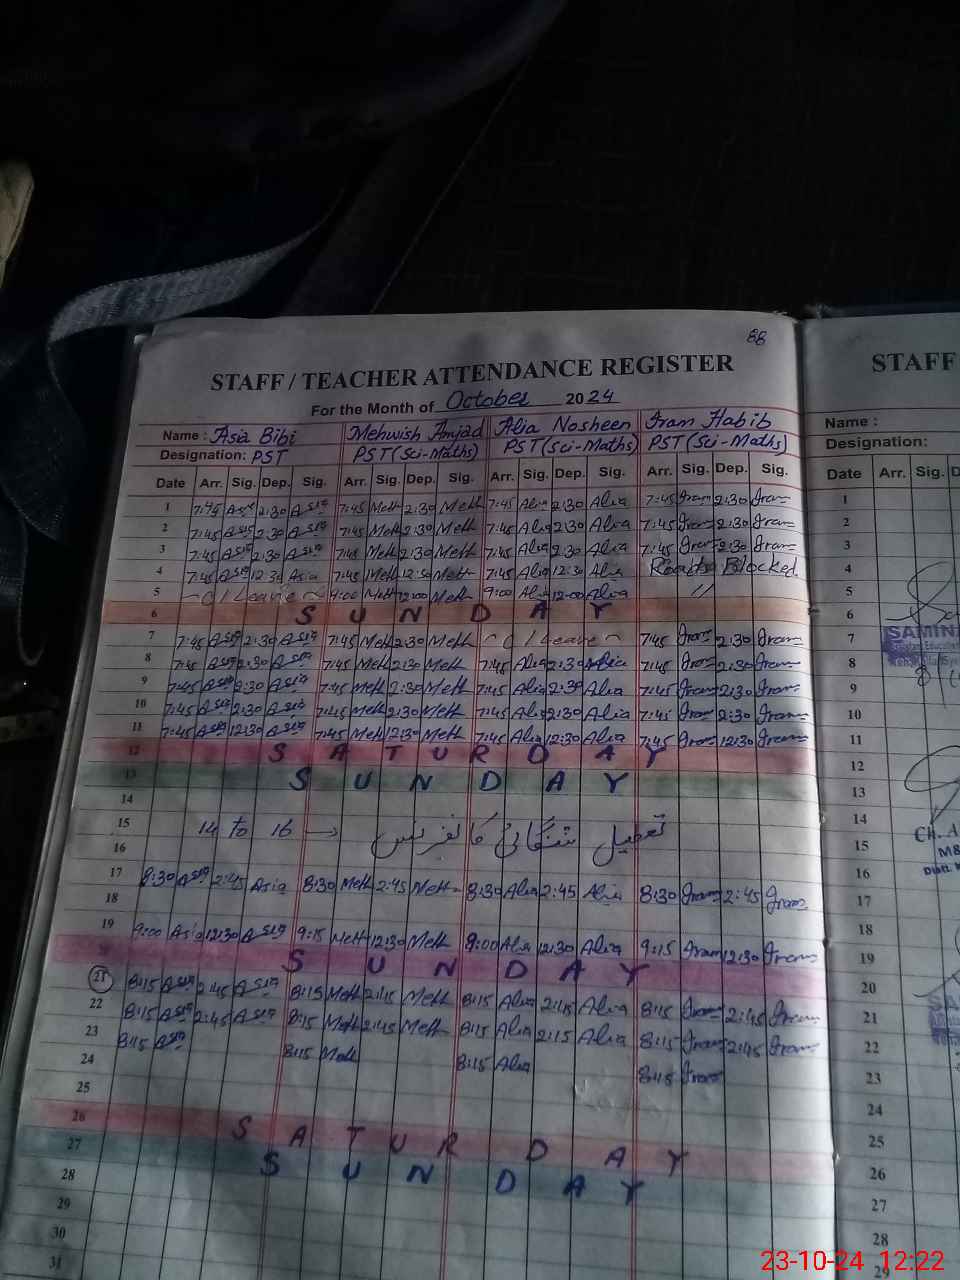 88
STAFF / TEACHER ATTENDANCE REGISTER
For the Month of October 2024
Name : Asia Bibi Mehwish Amjad Alia Nosheen Iram Habib
Designation: PST PST (Sci-Maths) PST (Sci-Maths) PST (Sci-Maths)
Date Arr. Sig. Dep. Sig. Arr. Sig. Dep. Sig. Arr. Sig. Dep. Sig. Arr. Sig. Dep. Sig.
1 7:45 Asia 2:30 Asia 7:45 Meh 2:30 Meh 7:45 Alia 2:30 Alia 7:45 Iram 2:30 Iram
2 7:45 Asia 2:30 Asia 7:45 Meh 2:30 Meh 7:45 Alia 2:30 Alia 7:45 Iram 2:30 Iram
3 7:45 Asia 2:30 Asia 7:45 Meh 2:30 Meh 7:45 Alia 2:30 Alia 7:45 Iram 2:30 Iram
4 7:45 Asia 12:30 Asia 7:45 Meh 12:30 Meh 7:45 Alia 12:30 Alia Roads Blocked
5 C/Leave 9:00 Meh 12:00 Meh 9:00 Alia 12:00 Alia //
6 SUNDAY
7 7:45 Asia 2:30 Asia 7:45 Meh 2:30 Meh C/Leave 7:45 Iram 2:30 Iram
8 7:45 Asia 2:30 Asia 7:45 Meh 2:30 Meh 7:45 Alia 2:30 Alia 7:45 Iram 2:30 Iram
9 7:45 Asia 2:30 Asia 7:45 Meh 2:30 Meh 7:45 Alia 2:30 Alia 7:45 Iram 2:30 Iram
10 7:45 Asia 2:30 Asia 7:45 Meh 2:30 Meh 7:45 Alia 2:30 Alia 7:45 Iram 2:30 Iram
11 7:45 Asia 12:30 Asia 7:45 Meh 12:30 Meh 7:45 Alia 12:30 Alia 7:45 Iram 12:30 Iram
12 SATURDAY
13 SUNDAY
14
15 14 to 16 → تعطیل شنگھائی کانفرنس
16
17 8:30 Asia 2:45 Asia 8:30 Meh 2:45 Meh 8:30 Alia 2:45 Alia 8:30 Iram 2:45 Iram
18
19 9:00 Asia 12:30 Asia 9:15 Meh 12:30 Meh 9:00 Alia 12:30 Alia 9:15 Iram 12:30 Iram
SUNDAY
21 8:15 Asia 2:45 Asia 8:15 Meh 2:45 Meh 8:15 Alia 2:45 Alia 8:15 Iram 2:45 Iram
22 8:15 Asia 2:45 Asia 8:15 Meh 2:45 Meh 8:15 Alia 2:45 Alia 8:15 Iram 2:45 Iram
23 8:15 Asia 8:15 Meh 8:15 Alia 8:15 Iram
24
25
26 SATURDAY
27 SUNDAY
28
29
30
31
STAFF
Name :
Designation:
Date Arr. Sig.
1
2
3
4
5
6
7
8
9
10
11
12
13
14
15
16
17
18
19
20
21
22
23
24
25
26
27
28
29
23-10-24 12:22